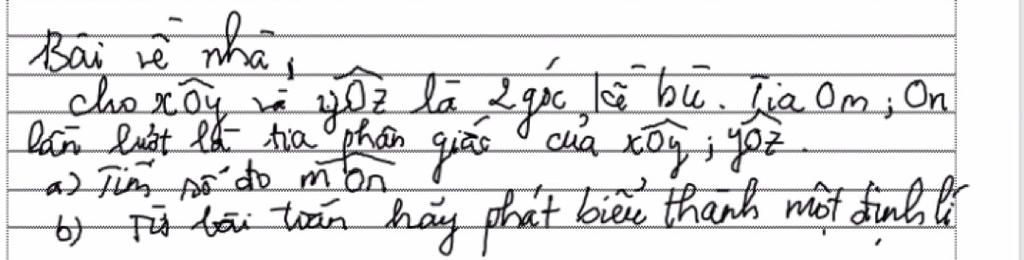 Bài về nhà,
cho xOy và yOz là 2 góc kề bù. Tia Om ; On
lần lượt là tia phân giác của xOy ; yOz.
a) Tìm số đo mOn
b) Từ bài toán hãy phát biểu thành một định lí